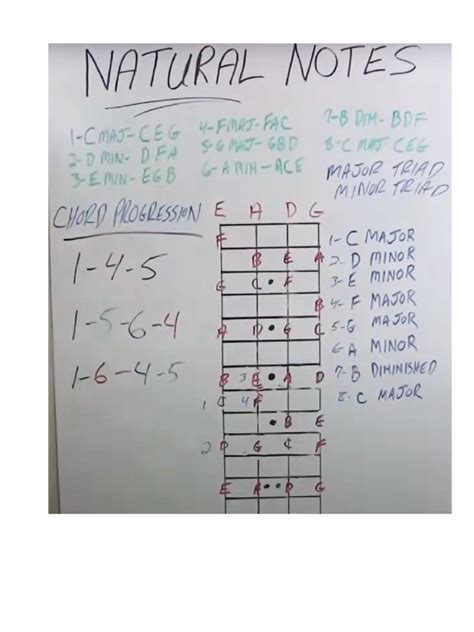 NATURAL NOTES
1-C MAJ-CEG
2-D MIN- DFA
3-E MIN- EGB
4-F MAJ- FAC
5-G MAJ- GBD
6-A MIN-ACE
7-B DIM- BDF
8-C MAJ CEG
MAJOR TRIAD
MINOR TRIAD
CHORD PROGRESSION
1-4-5
1-5-6-4
1-6-4-5
E A D G
F
B E A
G C F
B
A D G C
B 3 E A D
1 C 4 F
B E
2 D G C F
E A D G
1-C MAJOR
2-D MINOR
3-E MINOR
4-F MAJOR
5-G MAJOR
6-A MINOR
7-B DIMINISHED
8-C MAJOR